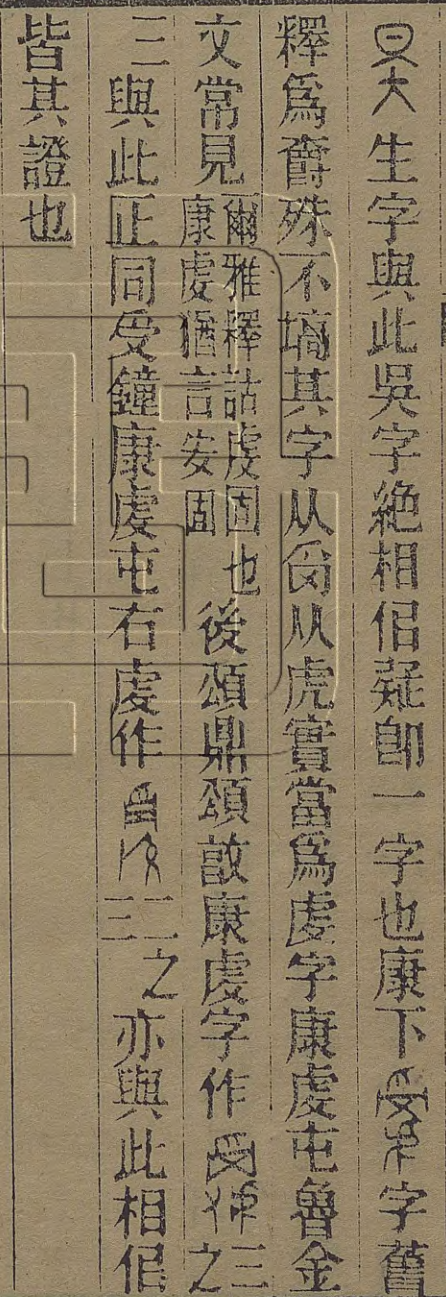 生字與此吳字絕相佀疑卽一字也康下字舊
釋爲殊不塙其字从从虎實當爲虔字康虔屯魯金
文常見爾雅釋詁虔固也康虔猶言安固後頌鼎頌敦康虔字作三之
三與此正同受鐘康虔屯右虔作二之三亦與此相佀
皆其證也